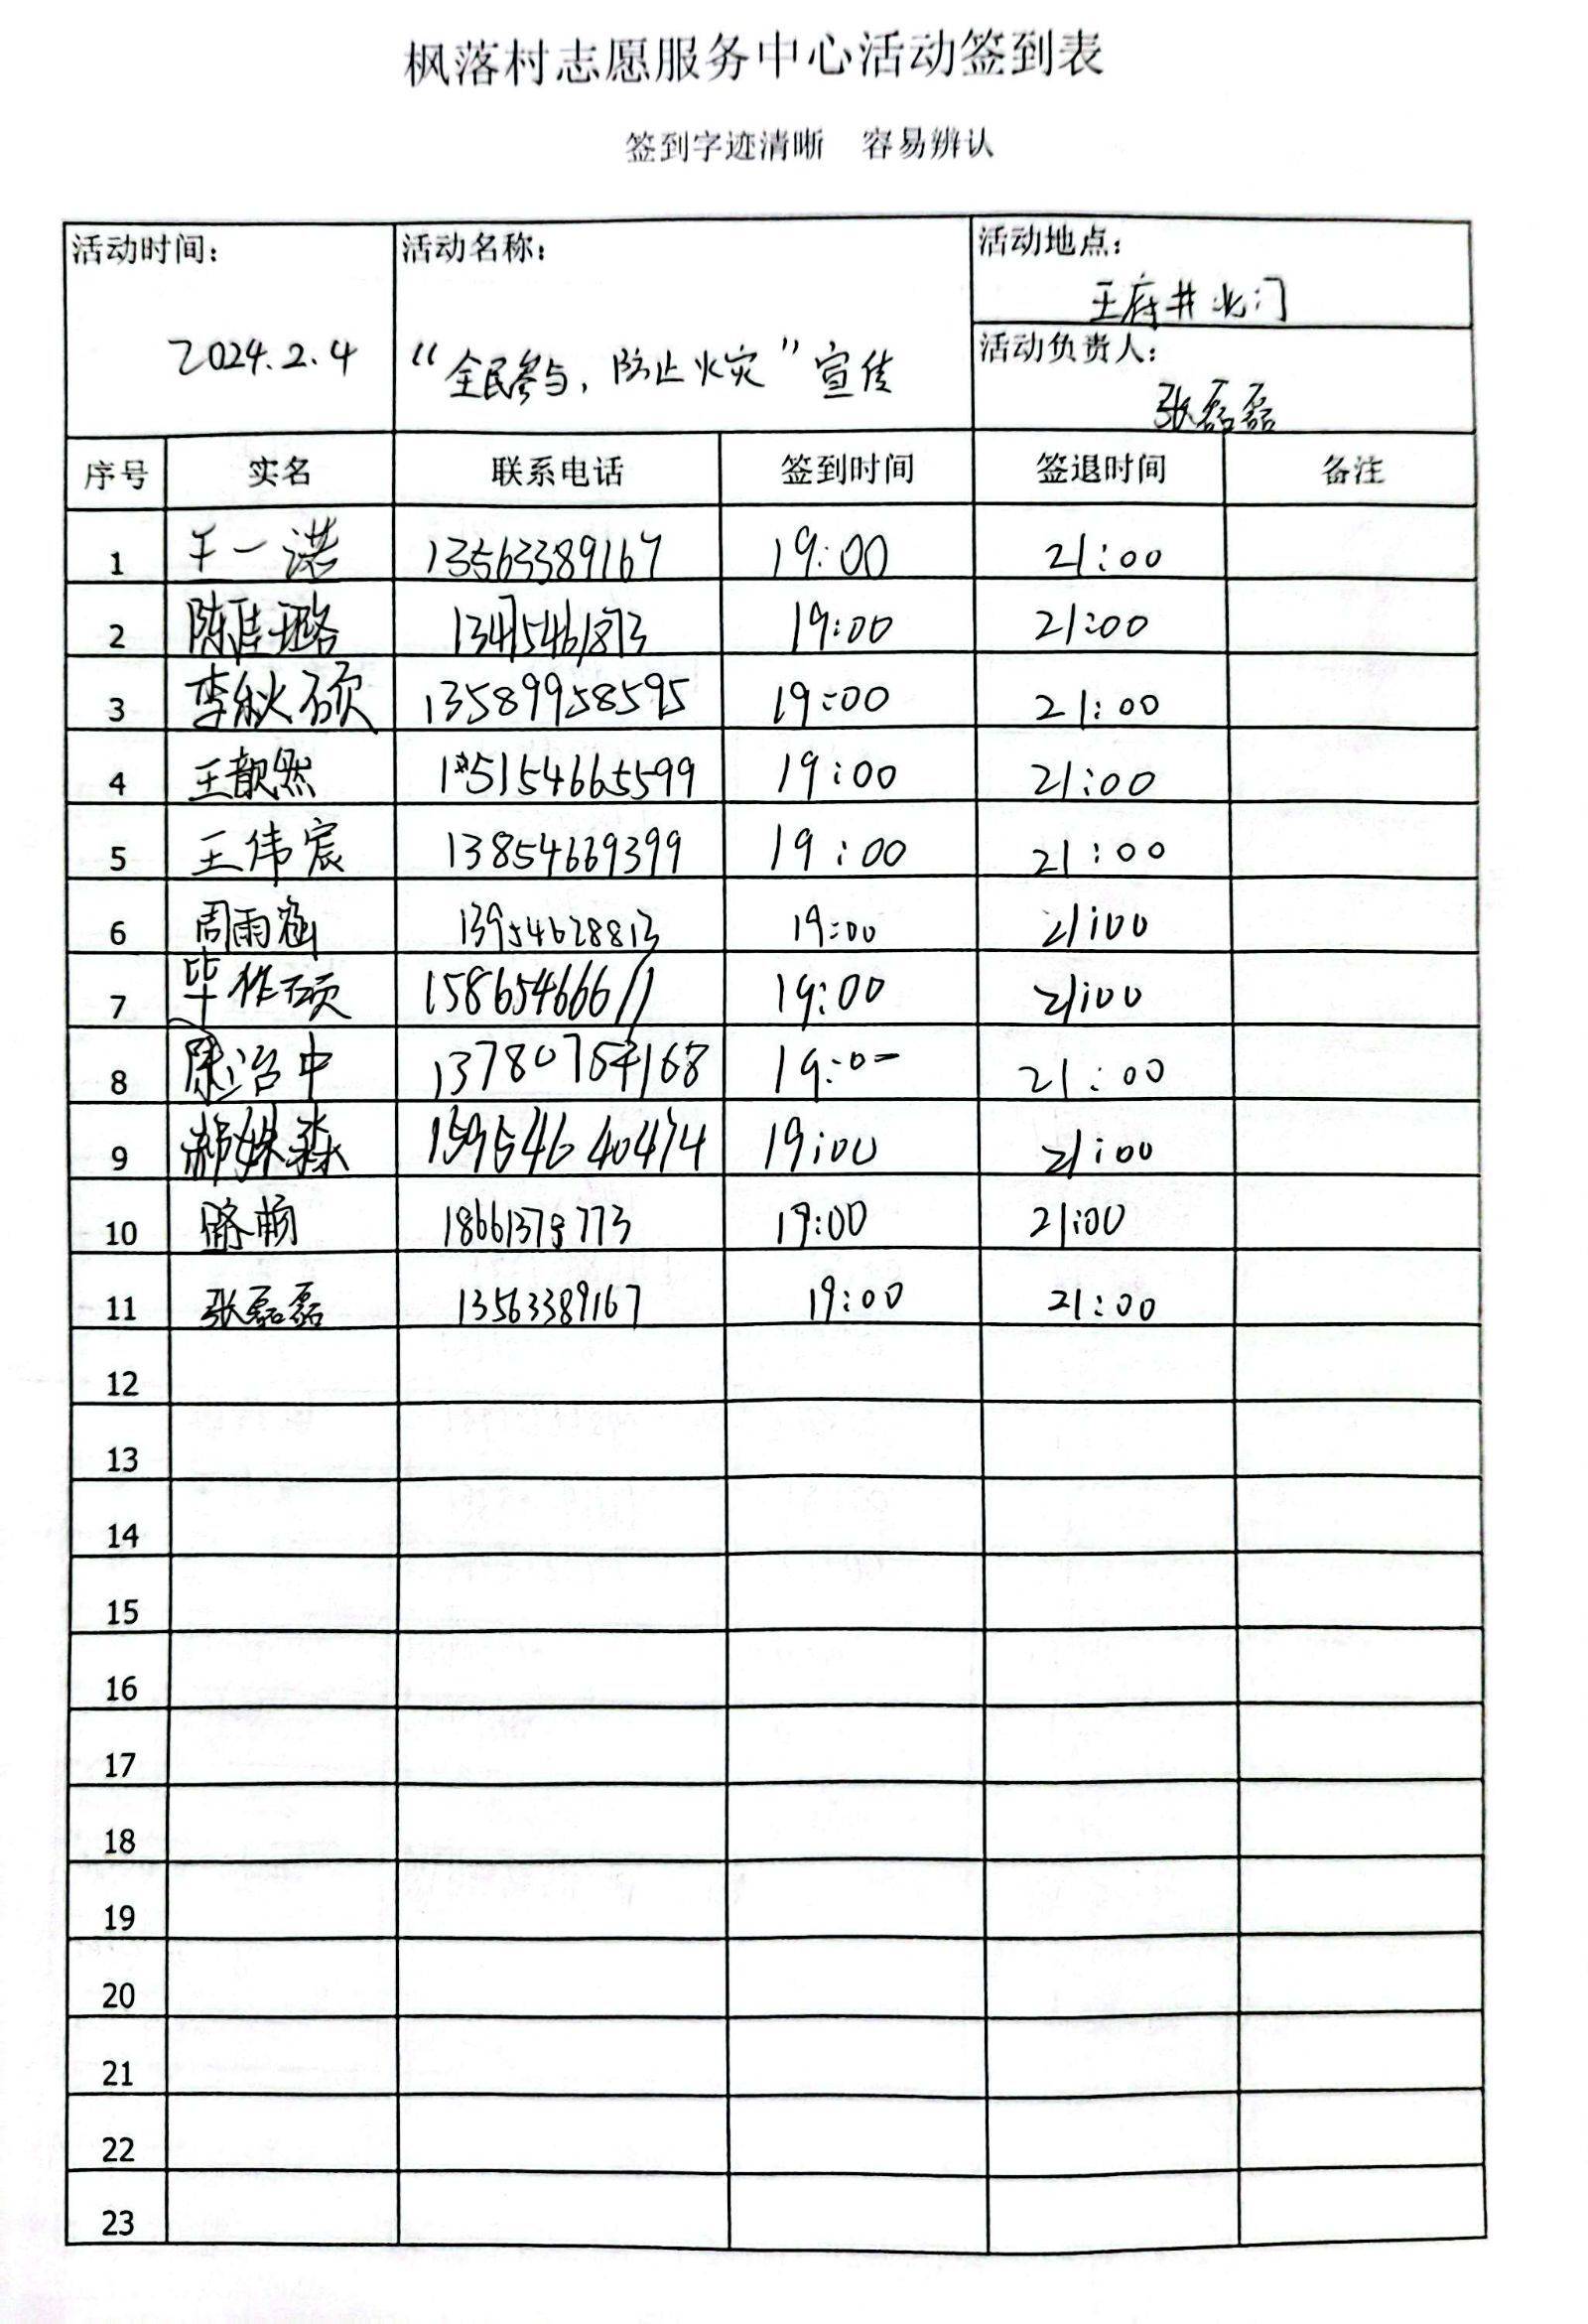 枫落村志愿服务中心活动签到表
签到字迹清晰 容易辨认
活动时间： 活动名称： 活动地点：
王府井北门
2024.2.4 “全民参与，防止火灾”宣传 活动负责人：
张磊磊
序号 实名 联系电话 签到时间 签退时间 备注
1 王一诺 13563389167 19:00 21:00
2 陈佳璐 13475461873 19:00 21:00
3 李秋硕 13589958595 19:00 21:00
4 王歆然 15154665599 19:00 21:00
5 王伟宸 13854669399 19:00 21:00
6 周雨涵 13954628813 19:00 21:00
7 毕作硕 15865466611 19:00 21:00
8 陈治中 13780764168 19:00 21:00
9 郝姝淼 15954640474 19:00 21:00
10 19:00 21:00
11 张磊磊 13563389167 19:00 21:00
12
13
14
15
16
17
18
19
20
21
22
23